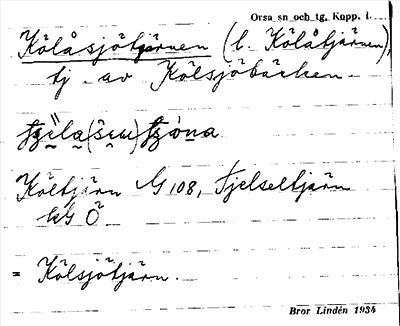 Orsa sn och tg, Kopp. l.
Kölåsjötjärnen (l. Kölåtjärnen),
tj. av Kölsjöbäcken.
Költjärn G 108, Fjelseltjärn
kG Ö
= Kölsjötjärn.
Bror Lindén 1934